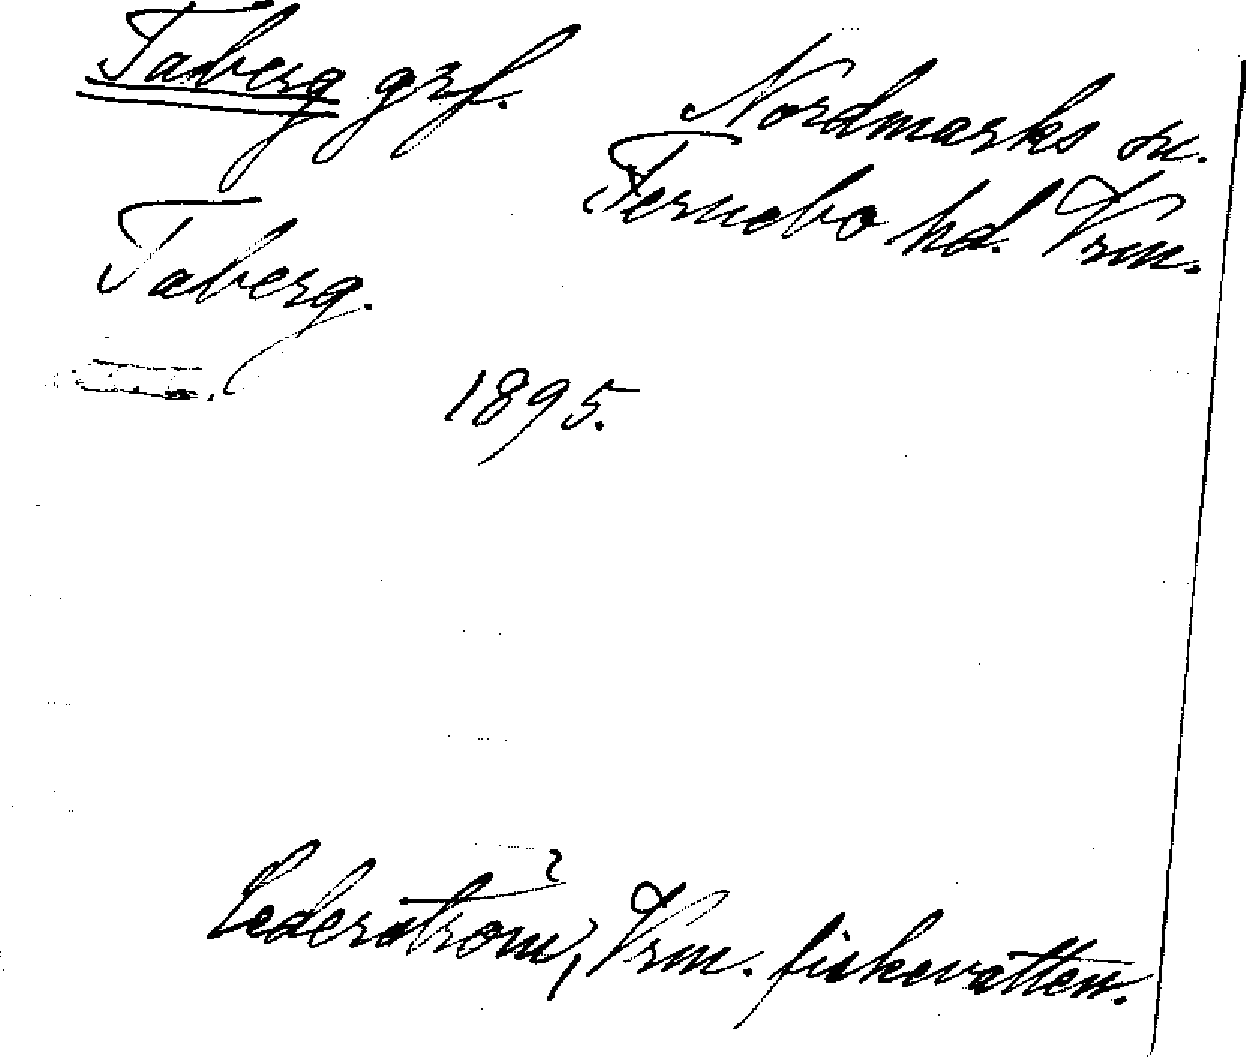 Taberg grf.
Nordmarks sn.
Fernebo hd. Vrm.
Taberg.
1895.
Cederström, Vrm. fiskevatten.